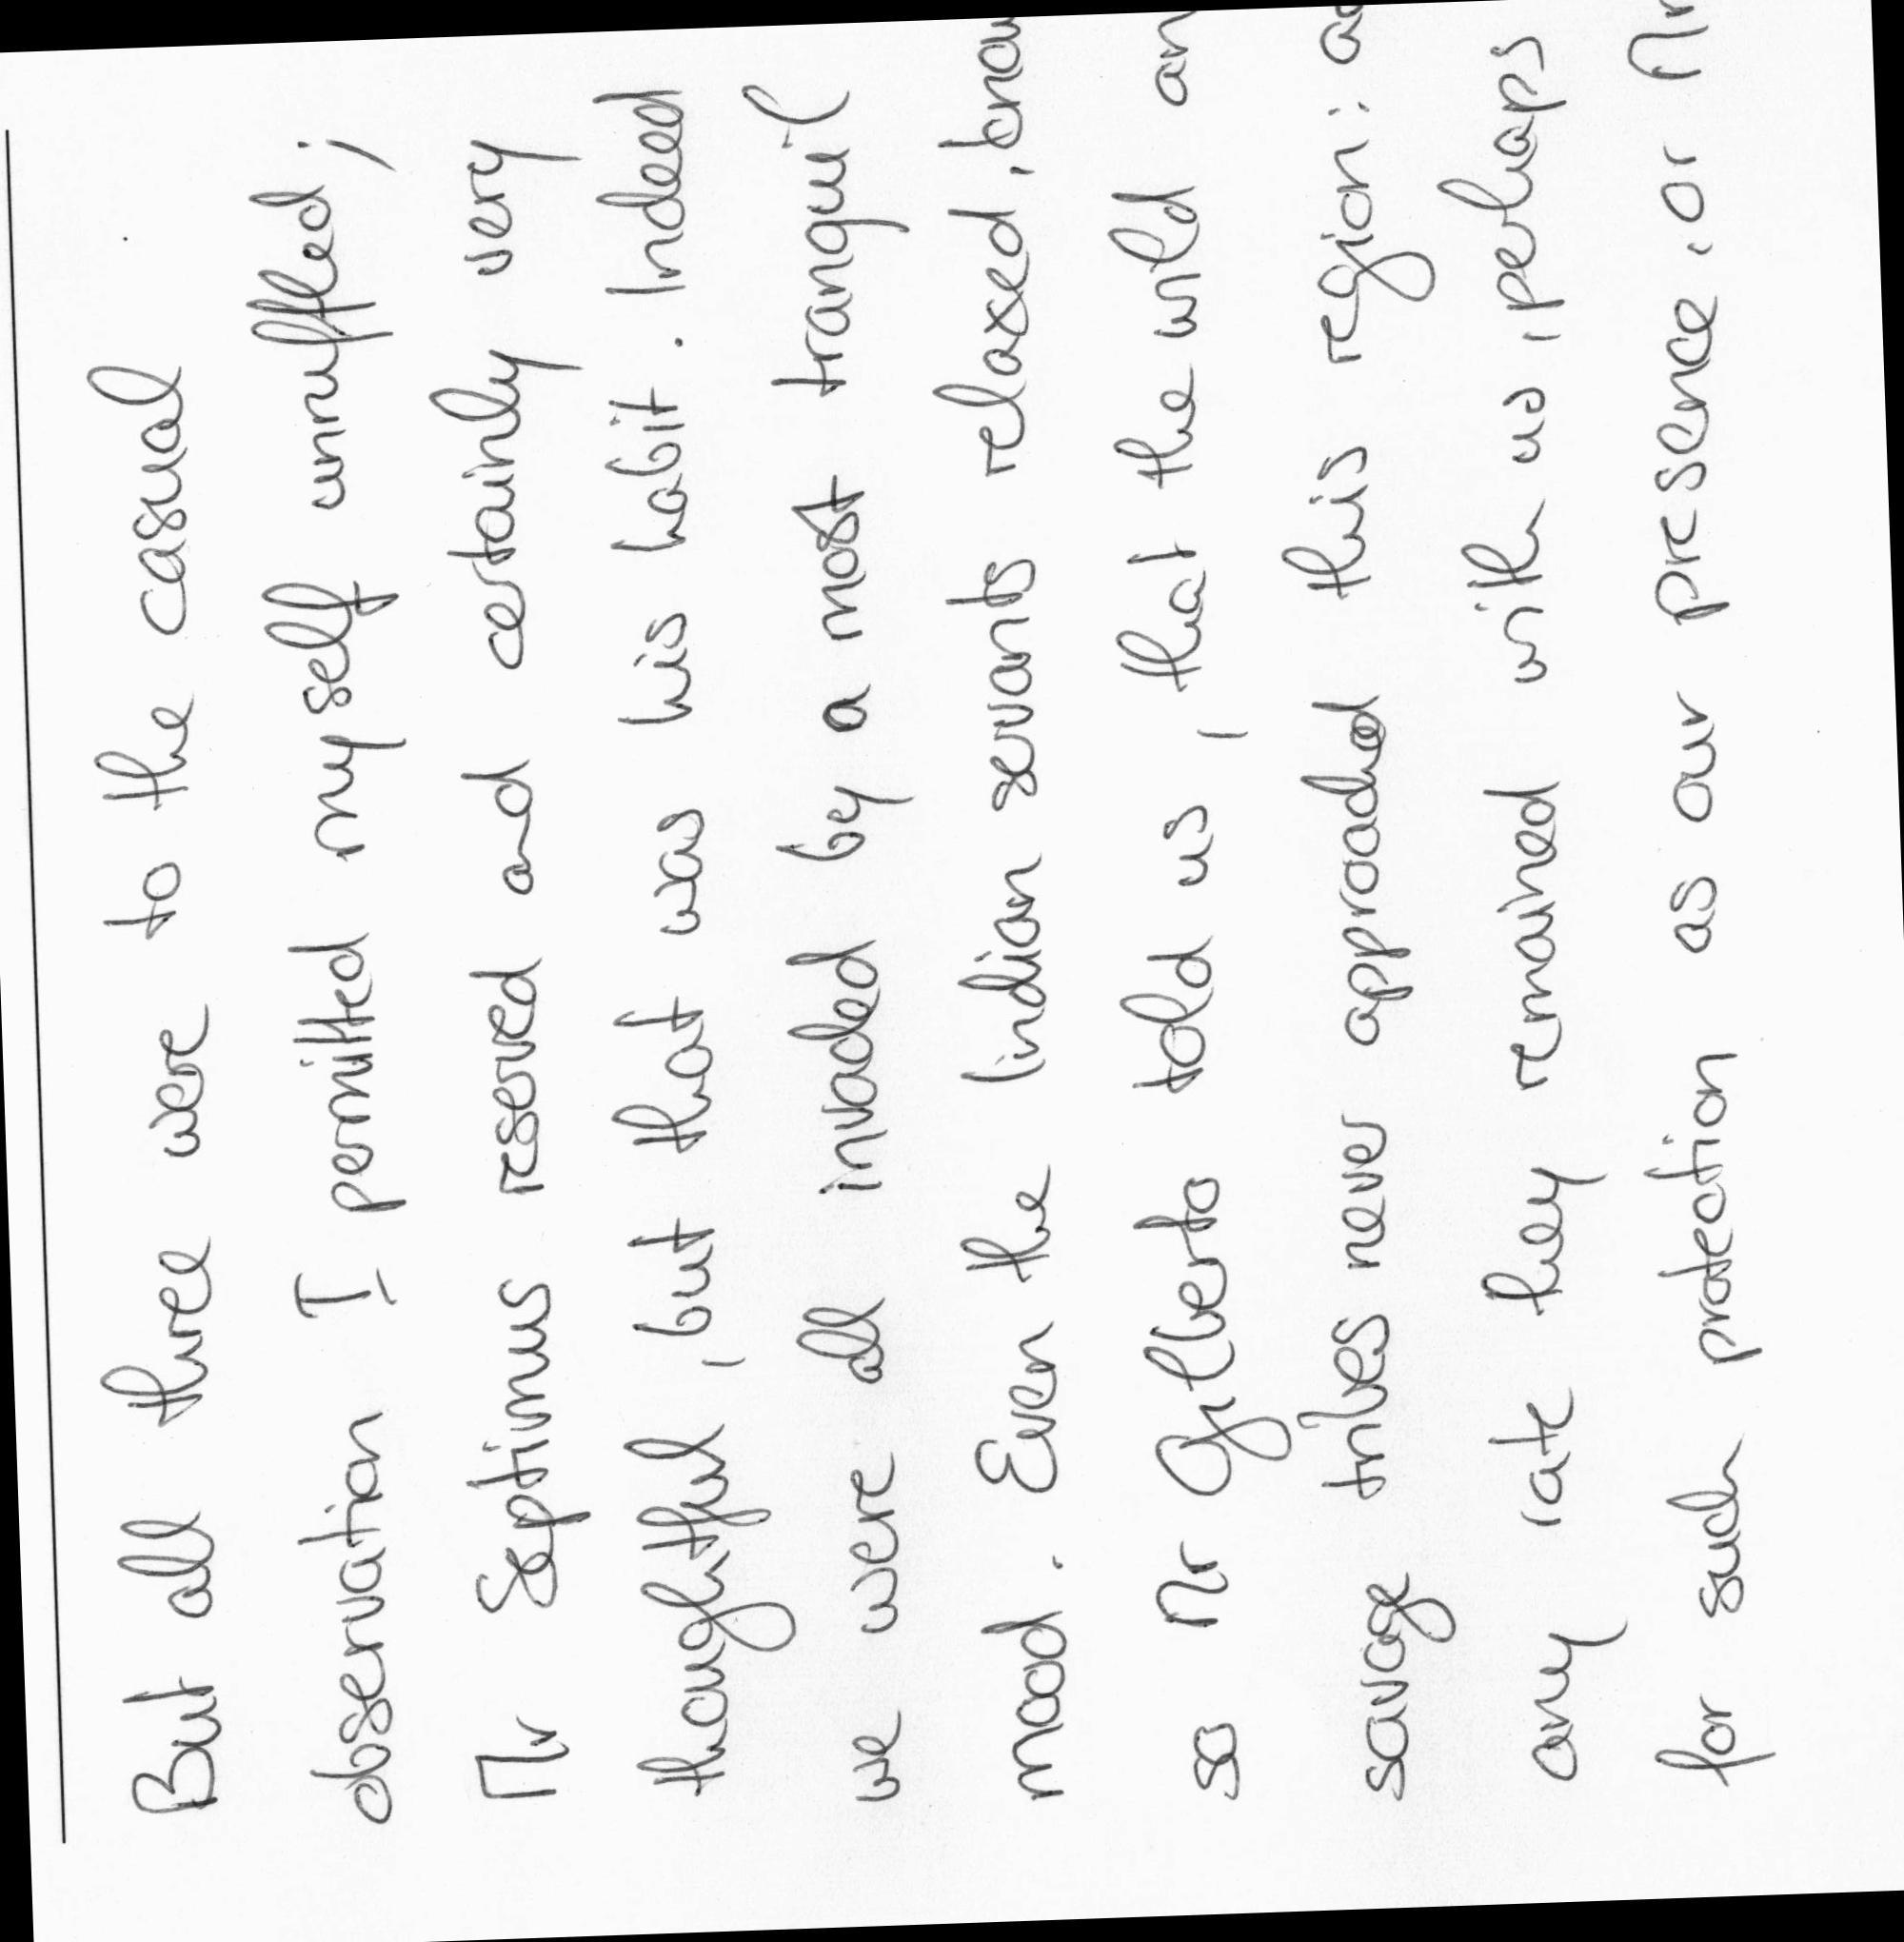 But all three were to the casual
observation I permitted myself unruffled;
Mr Septimus reserved and certainly very
thoughtful, but that was his habit. Indeed
we were all invaded by a most tranquil
mood. Even the Indian servants relaxed, know
so Mr Gilberto told us, that the wild an
savage tribes never approached this region: as
any rate they remained with us, perhaps
for such protection as our presence, or Mr